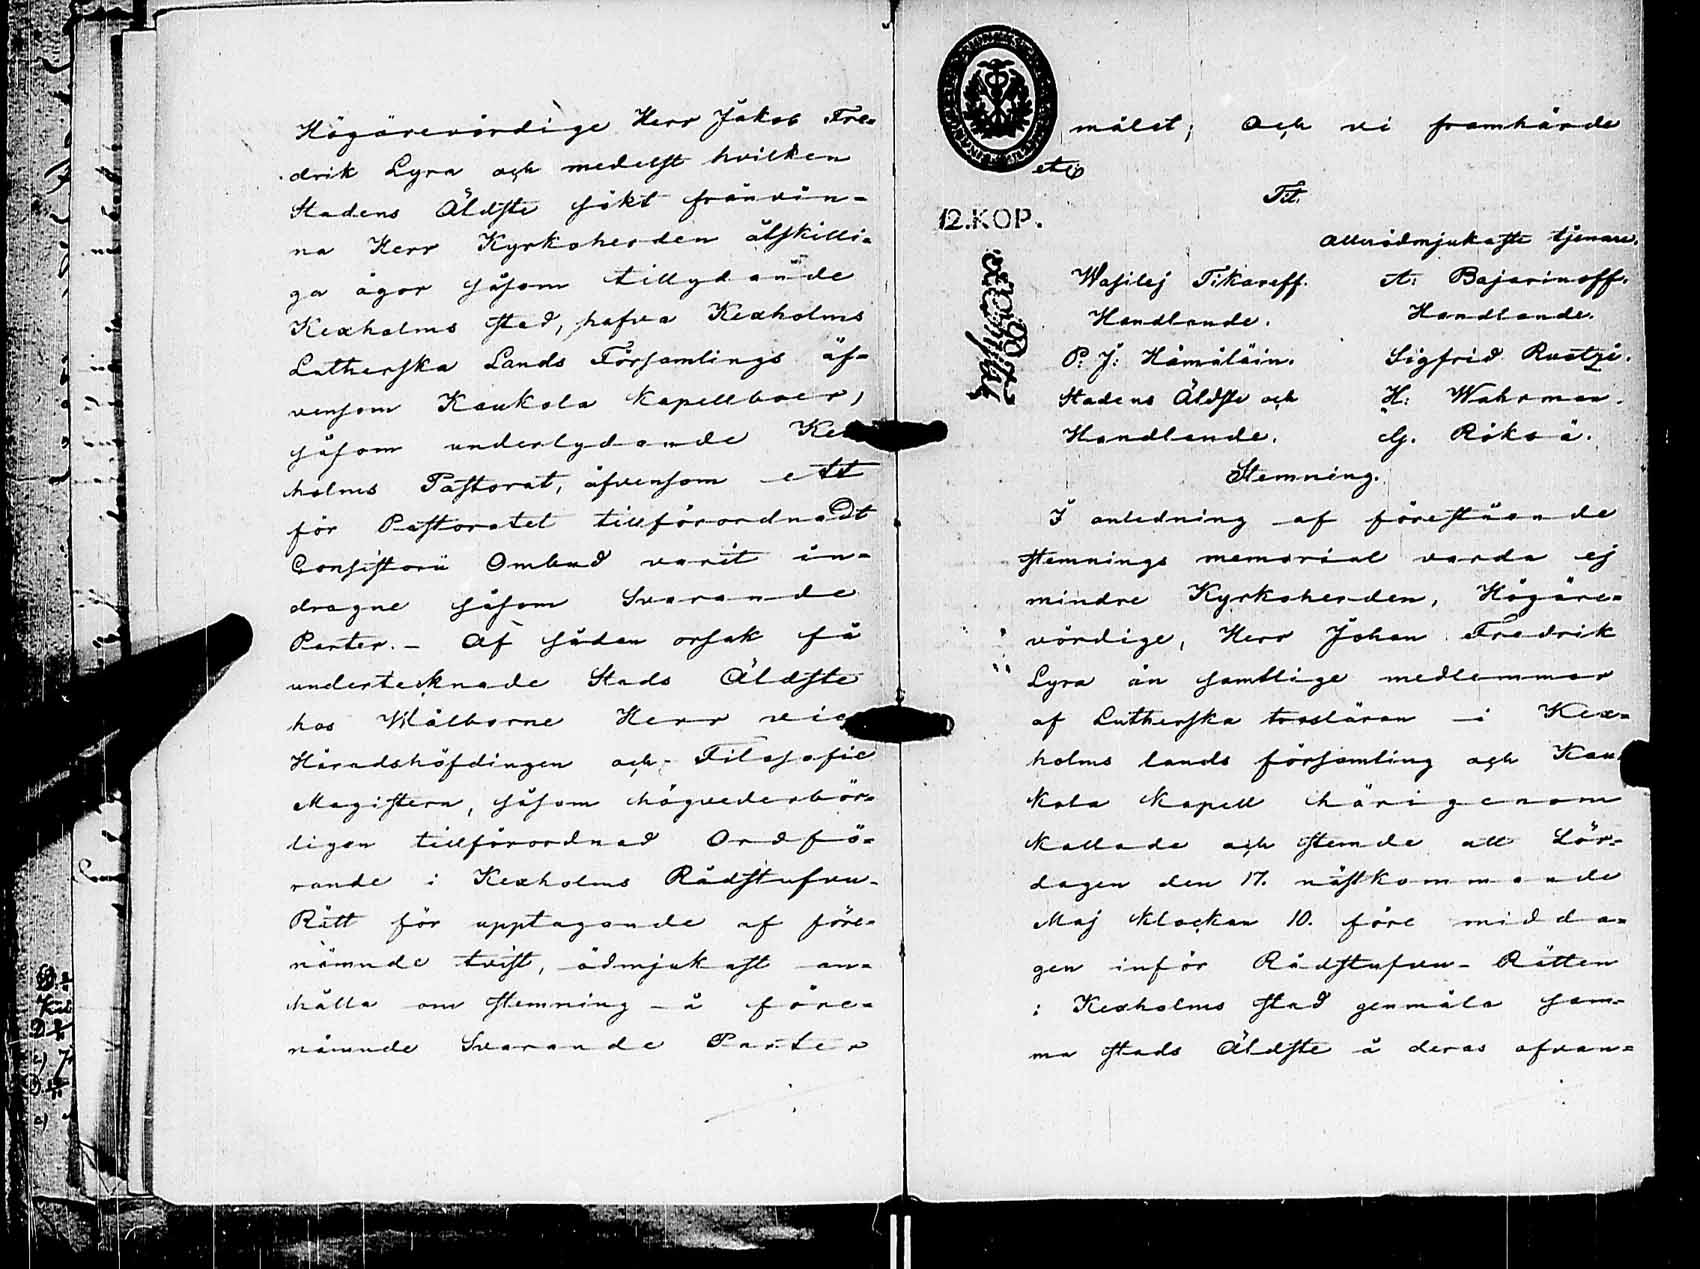 Högärevördige Herr Jakob Fre-
drik Lyra och medelst hvilken
Stadens Äldste sökt frånvin-
na Herr Kyrkoherden åtskilli-
ga ägor såsom tillydande
Kexholms stad, hafva Kexholms
Lutherska Lands Församlings äf-
vensom Kaukola Kapellboer,
såsom underlydande Kex
holms Pastorat, äfvensom ett
för Pastoratet tillförordnadt
Consistorii Ombud varit in-
dragne såsom Svarande
Parter. – Af sådan orsak få
undertecknade Stads Äldste
hos Välborne Herr vice
Häradshöfdingen och Filosofie
Magistern, såsom högvederbör-
ligen tillförordnad Ordfö-
rande i Kexholms Rådstufvu-
Rätt för upptagande af före-
nämnde tvist, ödmjukast an-
hålla om stemning å före-
nämnde Svarande Parter
målet, Och vi framhärde
etc
Tit.
12.KOP.
allerödmjukaste tjenare.
Wasilej Tikareff. A: Bajarinoff.
Handlande. Handlande.
P. J: Hämäläin. Sigfrid Rustzi.
Stadens Äldste och H: Wahrman.
Handlande. G. Rökså.
Stemning.
I anledning af förestående
stemnings memorial varda ej
mindre Kyrkoherden, Högäre-
vördige, Herr Johan Fredrik
Lyra än samtlige medlemmar
af Lutherska trosläran i Kex-
holms lands församling och Kau
kola Kapell härigenom
kallade och stemde att Lör-
dagen den 17. nästkommande
Maj klockan 10. före midda-
gen inför Rådstufvu-Rätten
i Kexholms stad genmäla sam-
ma stads Äldste å deras ofvan-